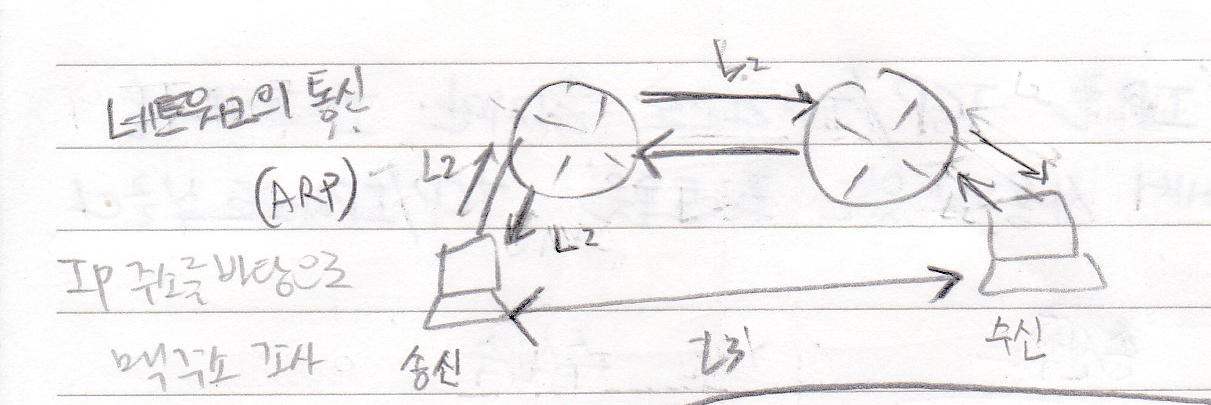 네트워크의 통신
(ARP)
IP 주소를 바탕으로
맥주소 조사
L2
L2
L2
L3
송신
수신